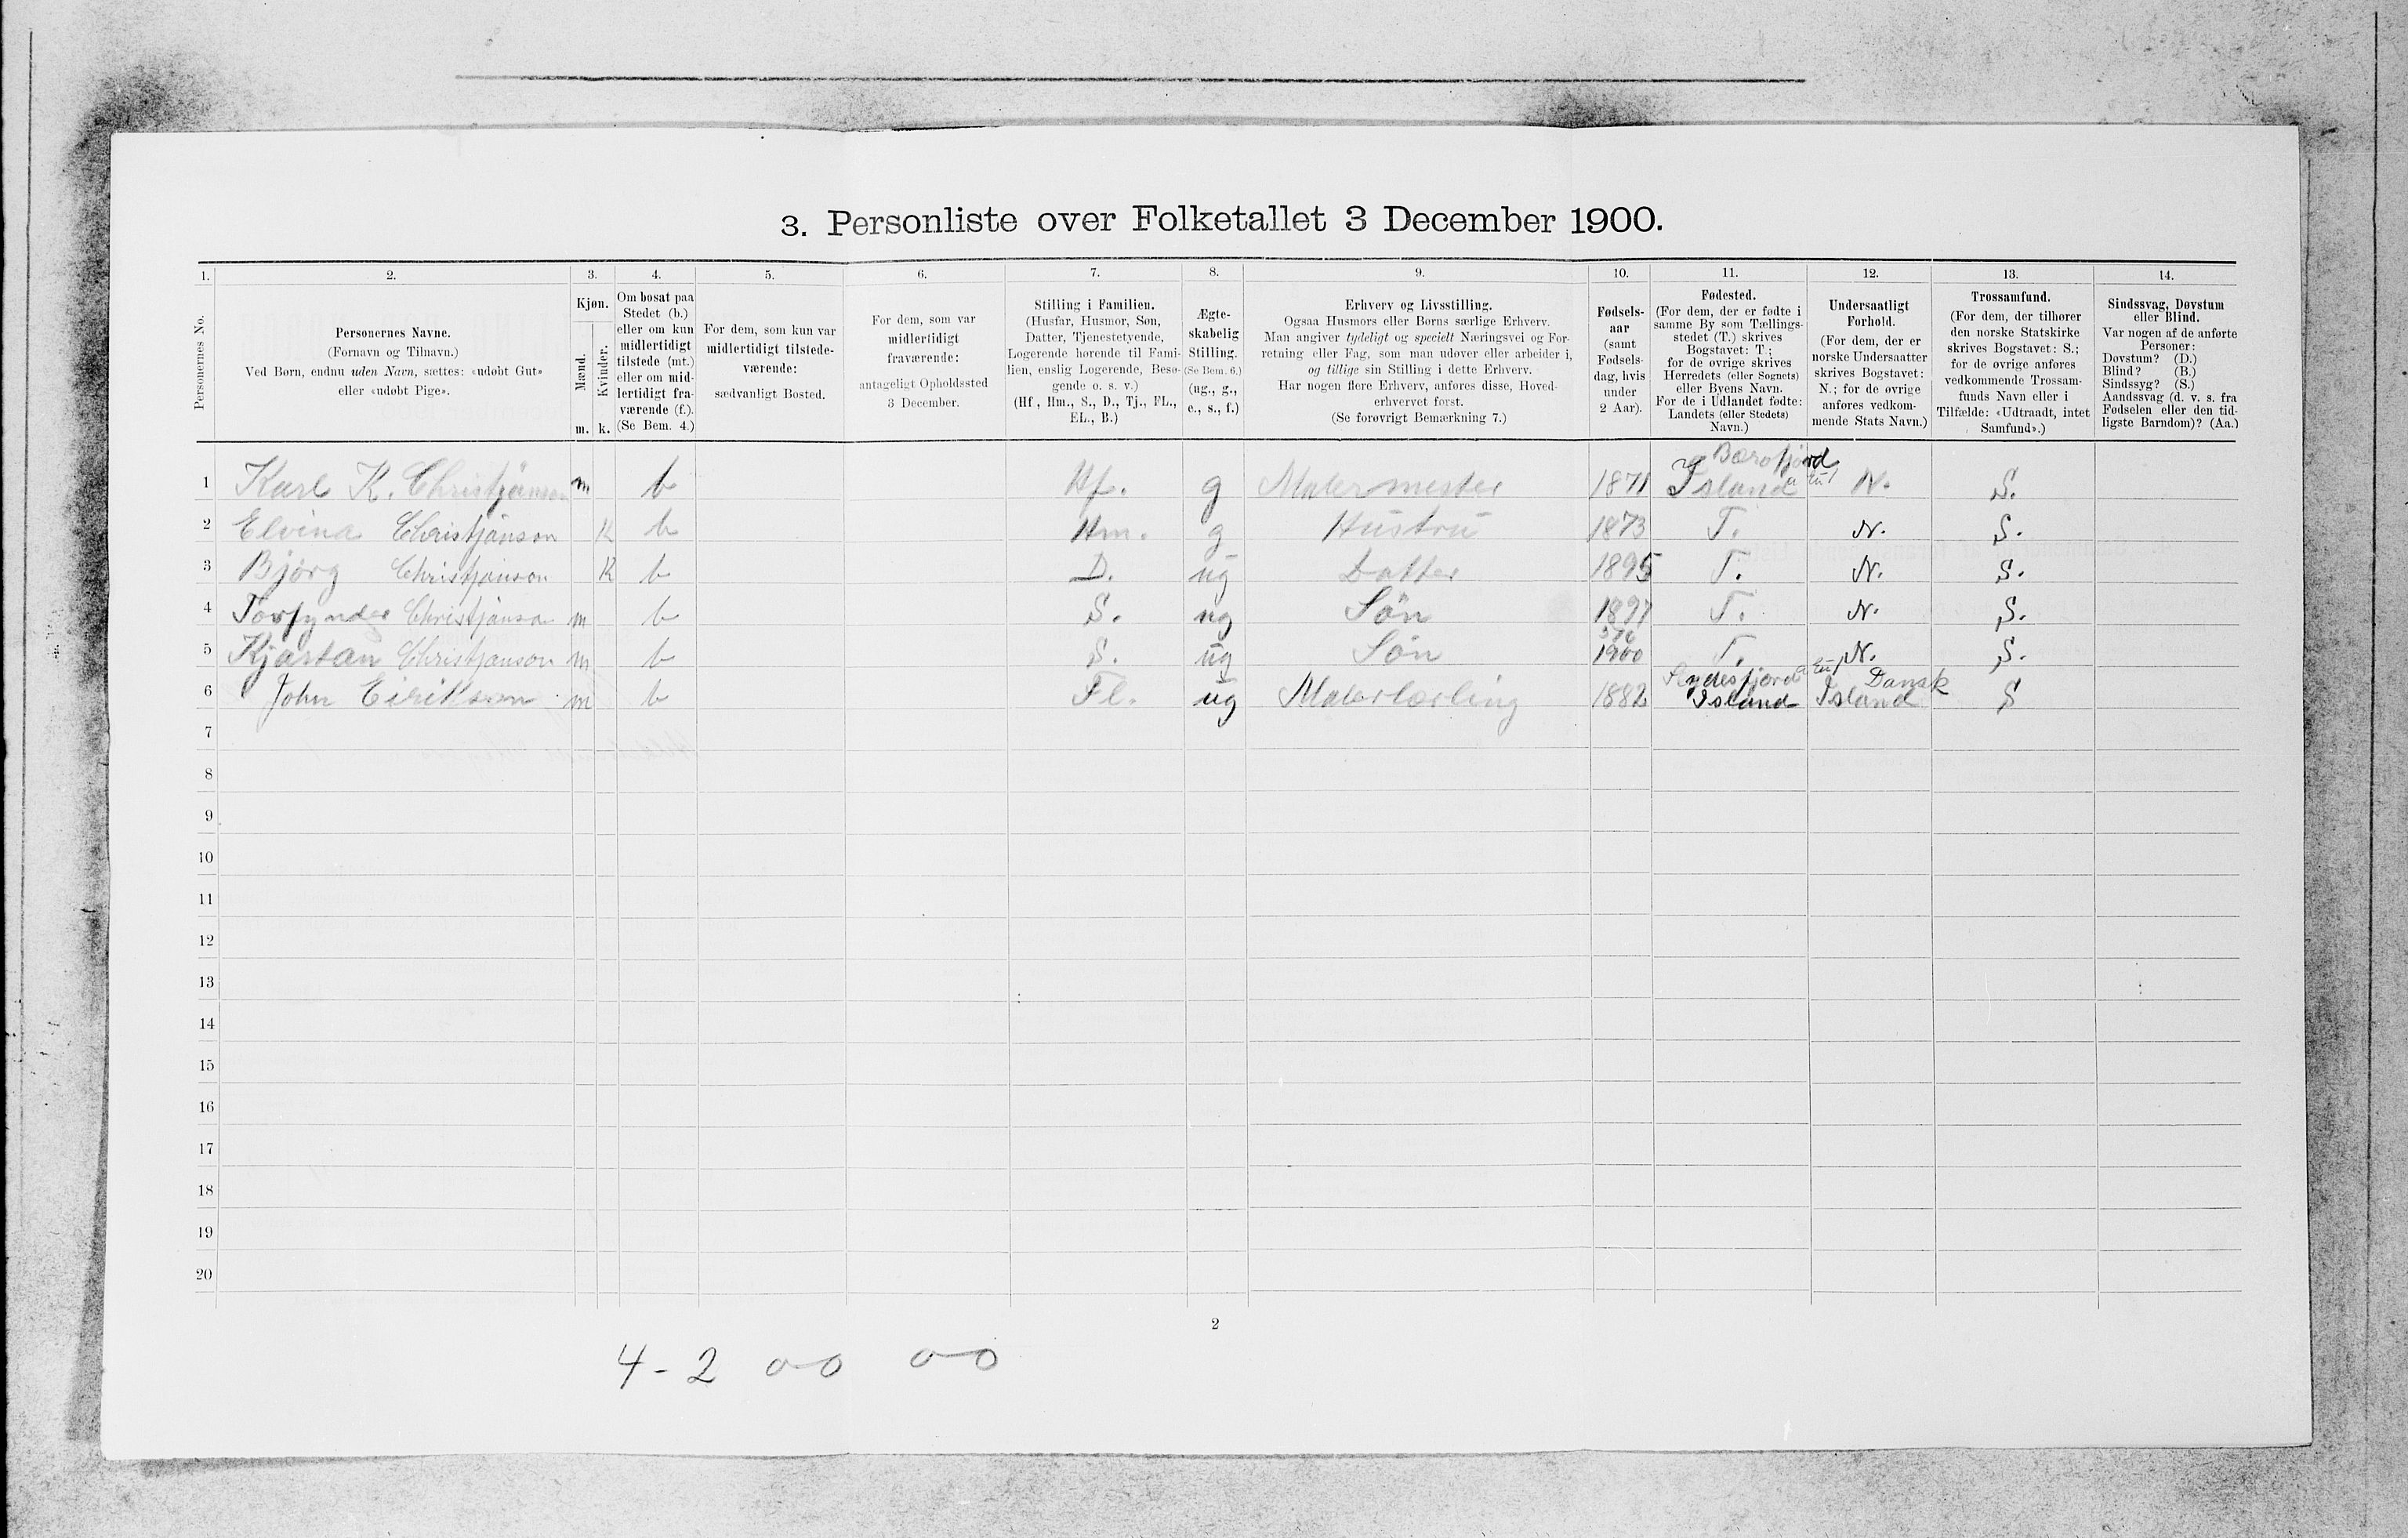 3. Personliste over Folketallet 3 December 1900.
1. 2. 3. 4. 5. 6. 7. 8. 9. 10. 11. 12. 13. 14.
Personernes No.
Personernes Navne.
(Fornavn og Tilnavn.)
Ved Børn, endnu uden Navn, sættes: «udøbt Gut»
eller «udøbt Pige».
Kjøn.
Mænd.
Kvinder.
m. k.
Om bosat paa
Stedet (b.)
eller om kun
midlertidigt
tilstede (mt.)
eller om mid-
lertidigt fra-
værende (f.).
(Se Bem. 4.)
For dem, som kun var
midlertidigt tilstede-
værende:
sædvanligt Bosted.
For dem, som var
midlertidigt
fraværende:
antageligt Opholdssted
3 December.
Stilling i Familien.
(Husfar, Husmor, Søn,
Datter, Tjenestetyende,
Logerende hørende til Fami-
lien, enslig Logerende, Besø-
gende o. s. v.)
(Hf., Hm., S., D., Tj., FL.,
EL., B.)
Ægte-
skabelig
Stilling.
(Se Bem. 6.)
(ug., g.,
e., s., f.)
Erhverv og Livsstilling.
Ogsaa Husmors eller Børns særlige Erhverv.
Man angiver tydeligt og specielt Næringsvei og For-
retning eller Fag, som man udøver eller arbeider i,
og tillige sin Stilling i dette Erhverv.
Har nogen flere Erhverv, anføres disse, Hoved-
erhvervet først.
(Se forøvrigt Bemærkning 7.)
Fødsels-
aar
(samt
Fødsels-
dag, hvis
under
2 Aar).
Fødested.
(For dem, der er fødte i
samme By som Tællings-
stedet (T.) skrives
Bogstavet: T.;
for de øvrige skrives
Herredets (eller Sognets)
eller Byens Navn.
For de i Udlandet fødte:
Landets (eller Stedets)
Navn.)
Undersaatligt
Forhold.
(For dem, der er
norske Undersaatter
skrives Bogstavet:
N.; for de øvrige
anføres vedkom-
mende Stats Navn.)
Trossamfund.
(For dem, der tilhører
den norske Statskirke
skrives Bogstavet: S.;
for de øvrige anføres
vedkommende Trossam-
funds Navn eller i
Tilfælde: «Udtraadt, intet
Samfund».)
Sindssvag, Døvstum
eller Blind.
Var nogen af de anførte
Personer:
Døvstum? (D.)
Blind? (B.)
Sindssyg? (S.)
Aandssvag (d. v. s. fra
Fødselen eller den tid-
ligste Barndom)? (Aa.)
Berofjord
1 Karl K. Christjánson m b Hf. g Malermester 1871 Island N. S.
2 Elvina Christjánson K b Hm. g Hustru 1873 T. N. S.
3 Bjørg Christjánson K b D. ug Datter 1895 T. N. S.
4 Torfynder Christjánson m b S. ug Søn 1897 T. N. S.
5 Kjartan Christjanson m b S. ug Søn 1900 T. N. S.
Seydesfjord Dansk
6 John Eirikson m b FL. ug Malerlærling 1882 Island Island S
7
8
9
10
11
12
13
14
15
16
17
18
19
20
2
4 - 2 0-0 0-0